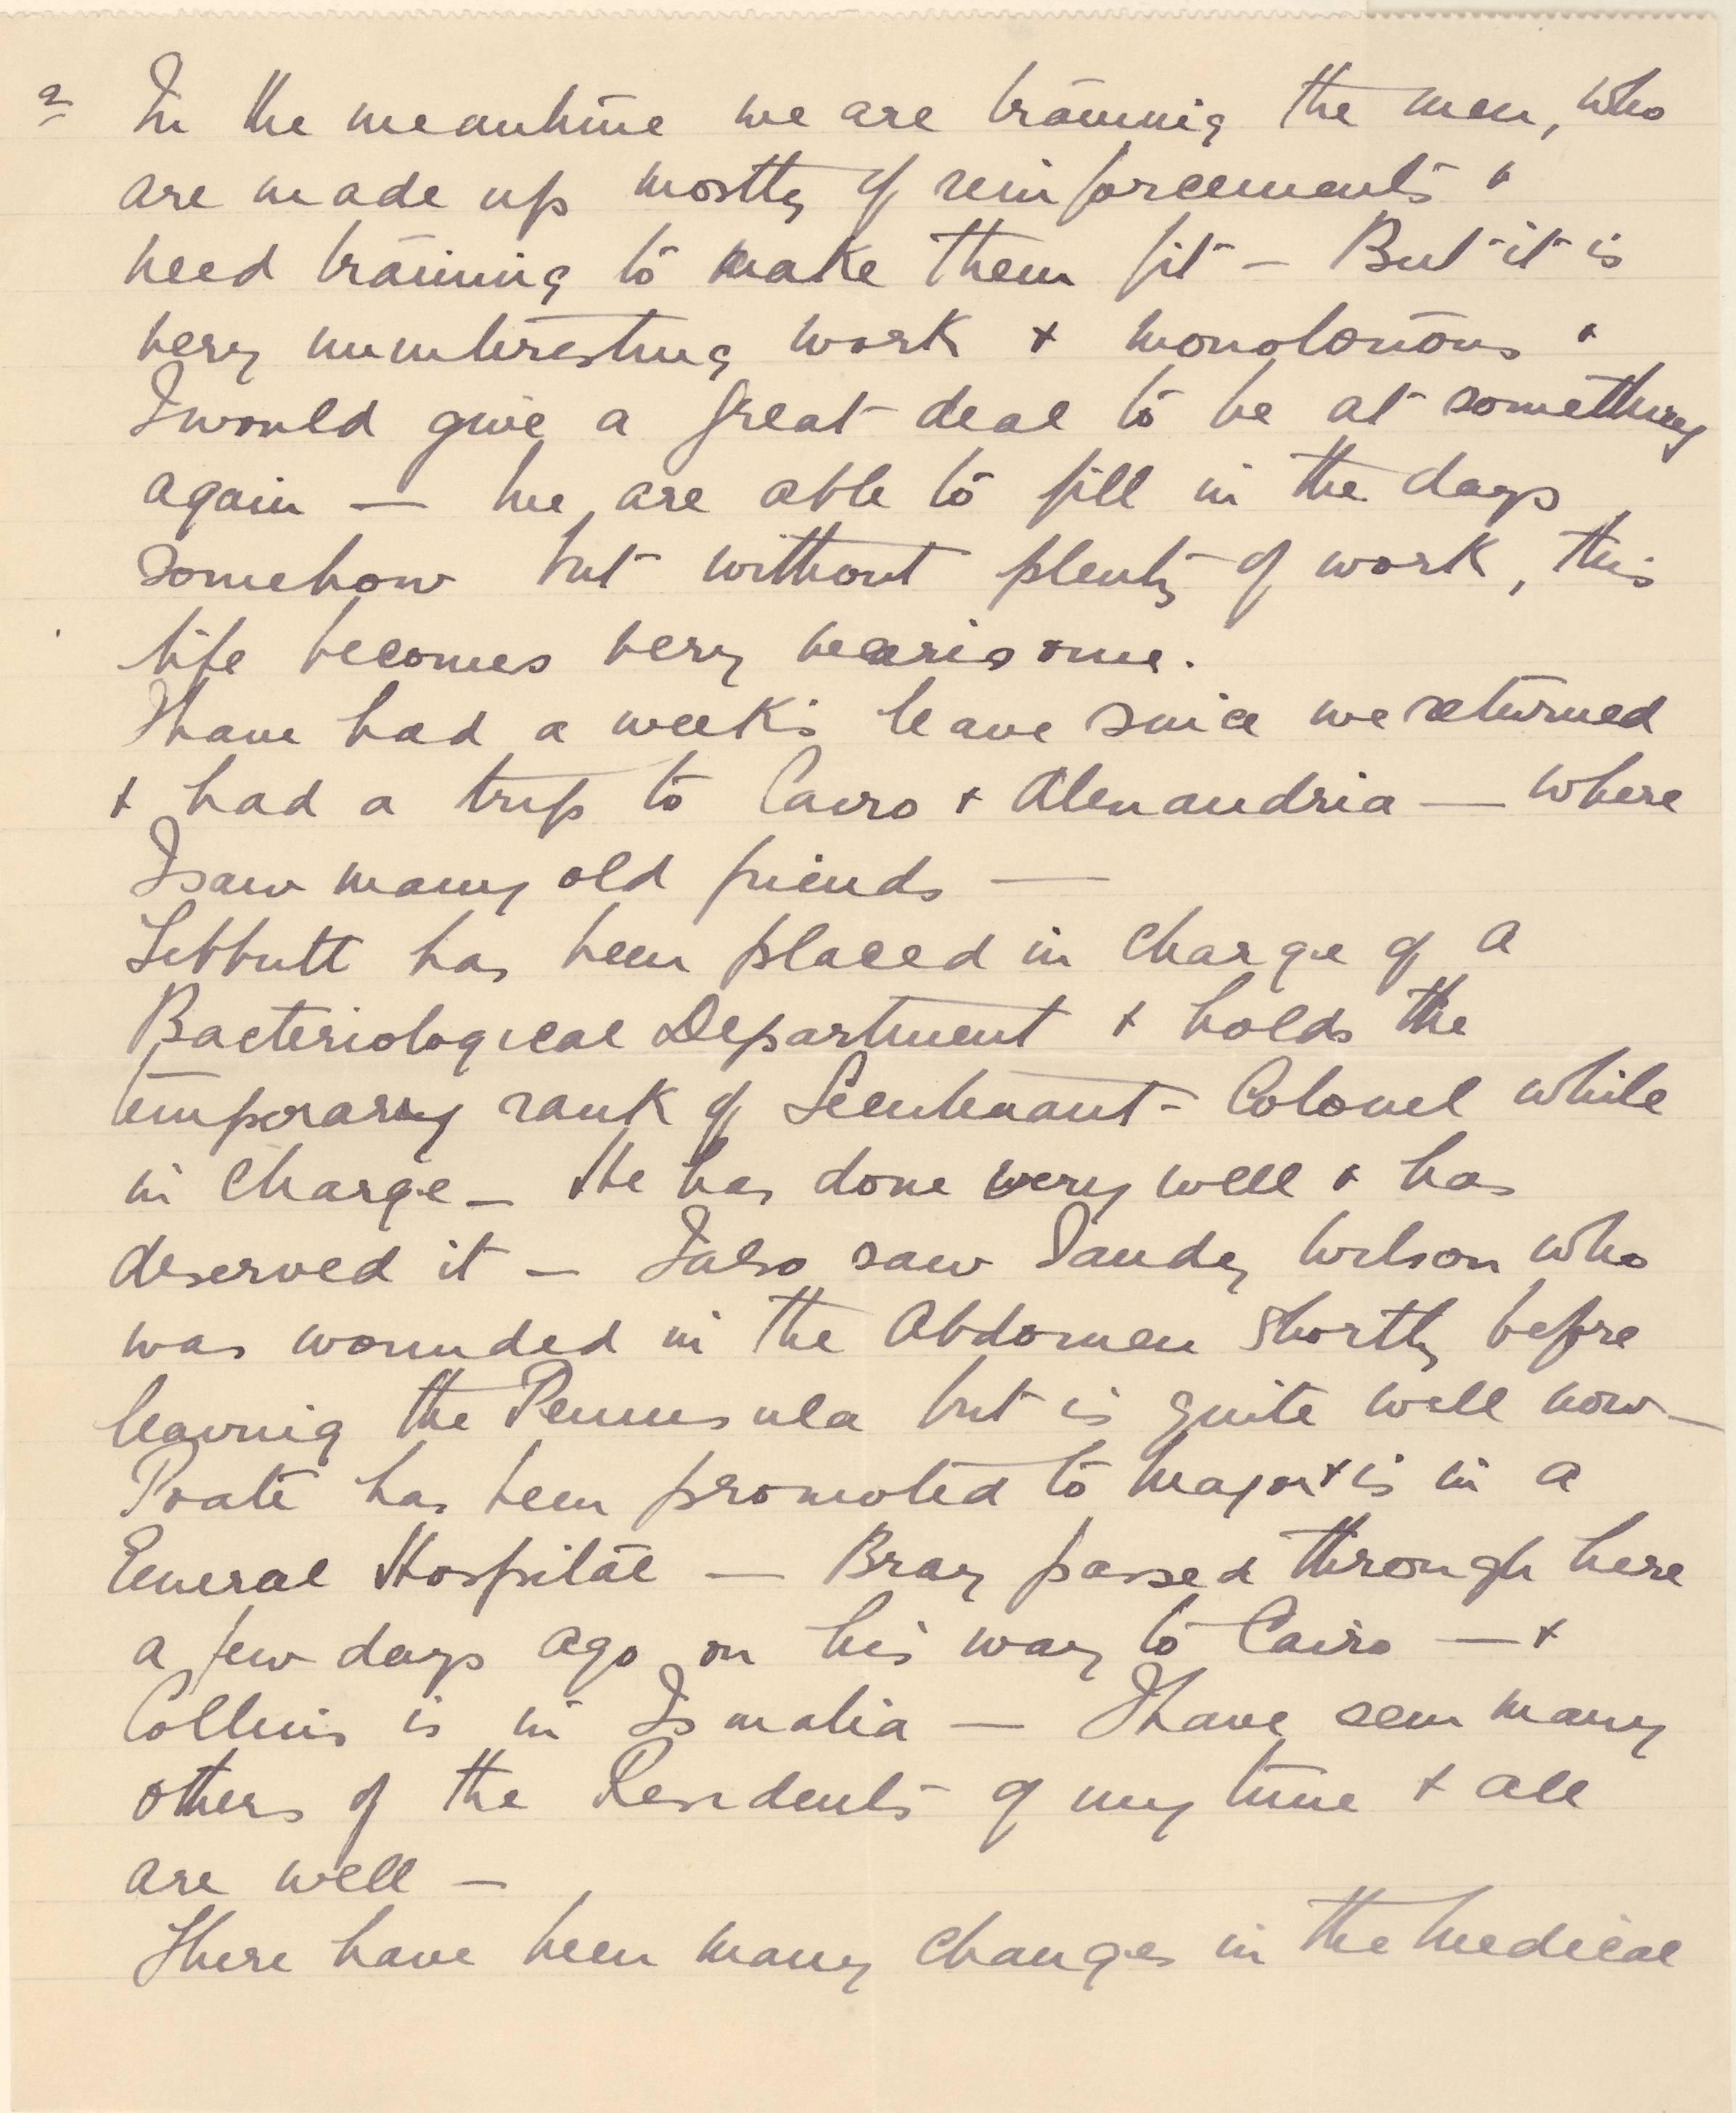 2
In the meantime we are training the men, who
are made up mostly of reinforcements &
need training to make them fit - But it is
very uninteresting work & monotonous &
I would give a great deal to be at something
again — We are able to fill in the days
somehow but without plenty of work, this
life becomes very wearisome.
I have had a week's leave since we returned
& had a trip to Cairo & Alexandria — where
I saw many old friends —
Tebbutt has been placed in charge of a
Bacteriological Department & holds the
temporary rank of Lieutenant-Colonel while
in charge - He has done very well & has
deserved it - I also saw Sandy Wilson who
was wounded in the Abdomen shortly before
leaving the Peninsula but is quite well now -
Poate has been promoted to Major & is in a
General Hospital — Bray passed through here
a few days ago on his way to Cairo — &
Collins is in Ismalia — I have seen many
others of the Residents of my time & all
are well -
There have been many changes in the Medical